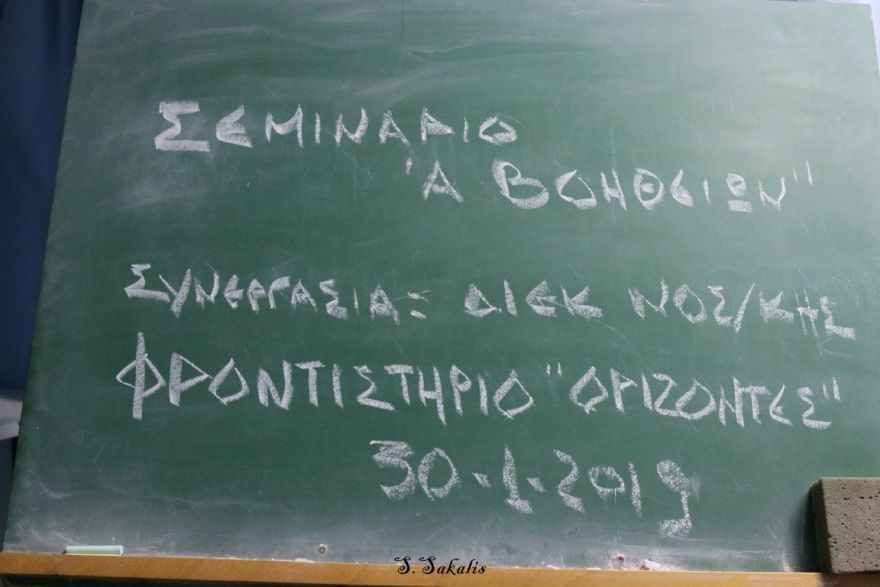 ΣΕΜΙΝΑΡΙΟ
'Α ΒΟΗΘΕΙΩΝ"
ΣΥΝΕΡΓΑΣΙΑ: ΔΙΕΚ ΝΟΣ/ΚΗΣ
ΦΡΟΝΤΙΣΤΗΡΙΟ "ΟΡΙΖΟΝΤΕΣ"
30-1-2019
S. Sakalis